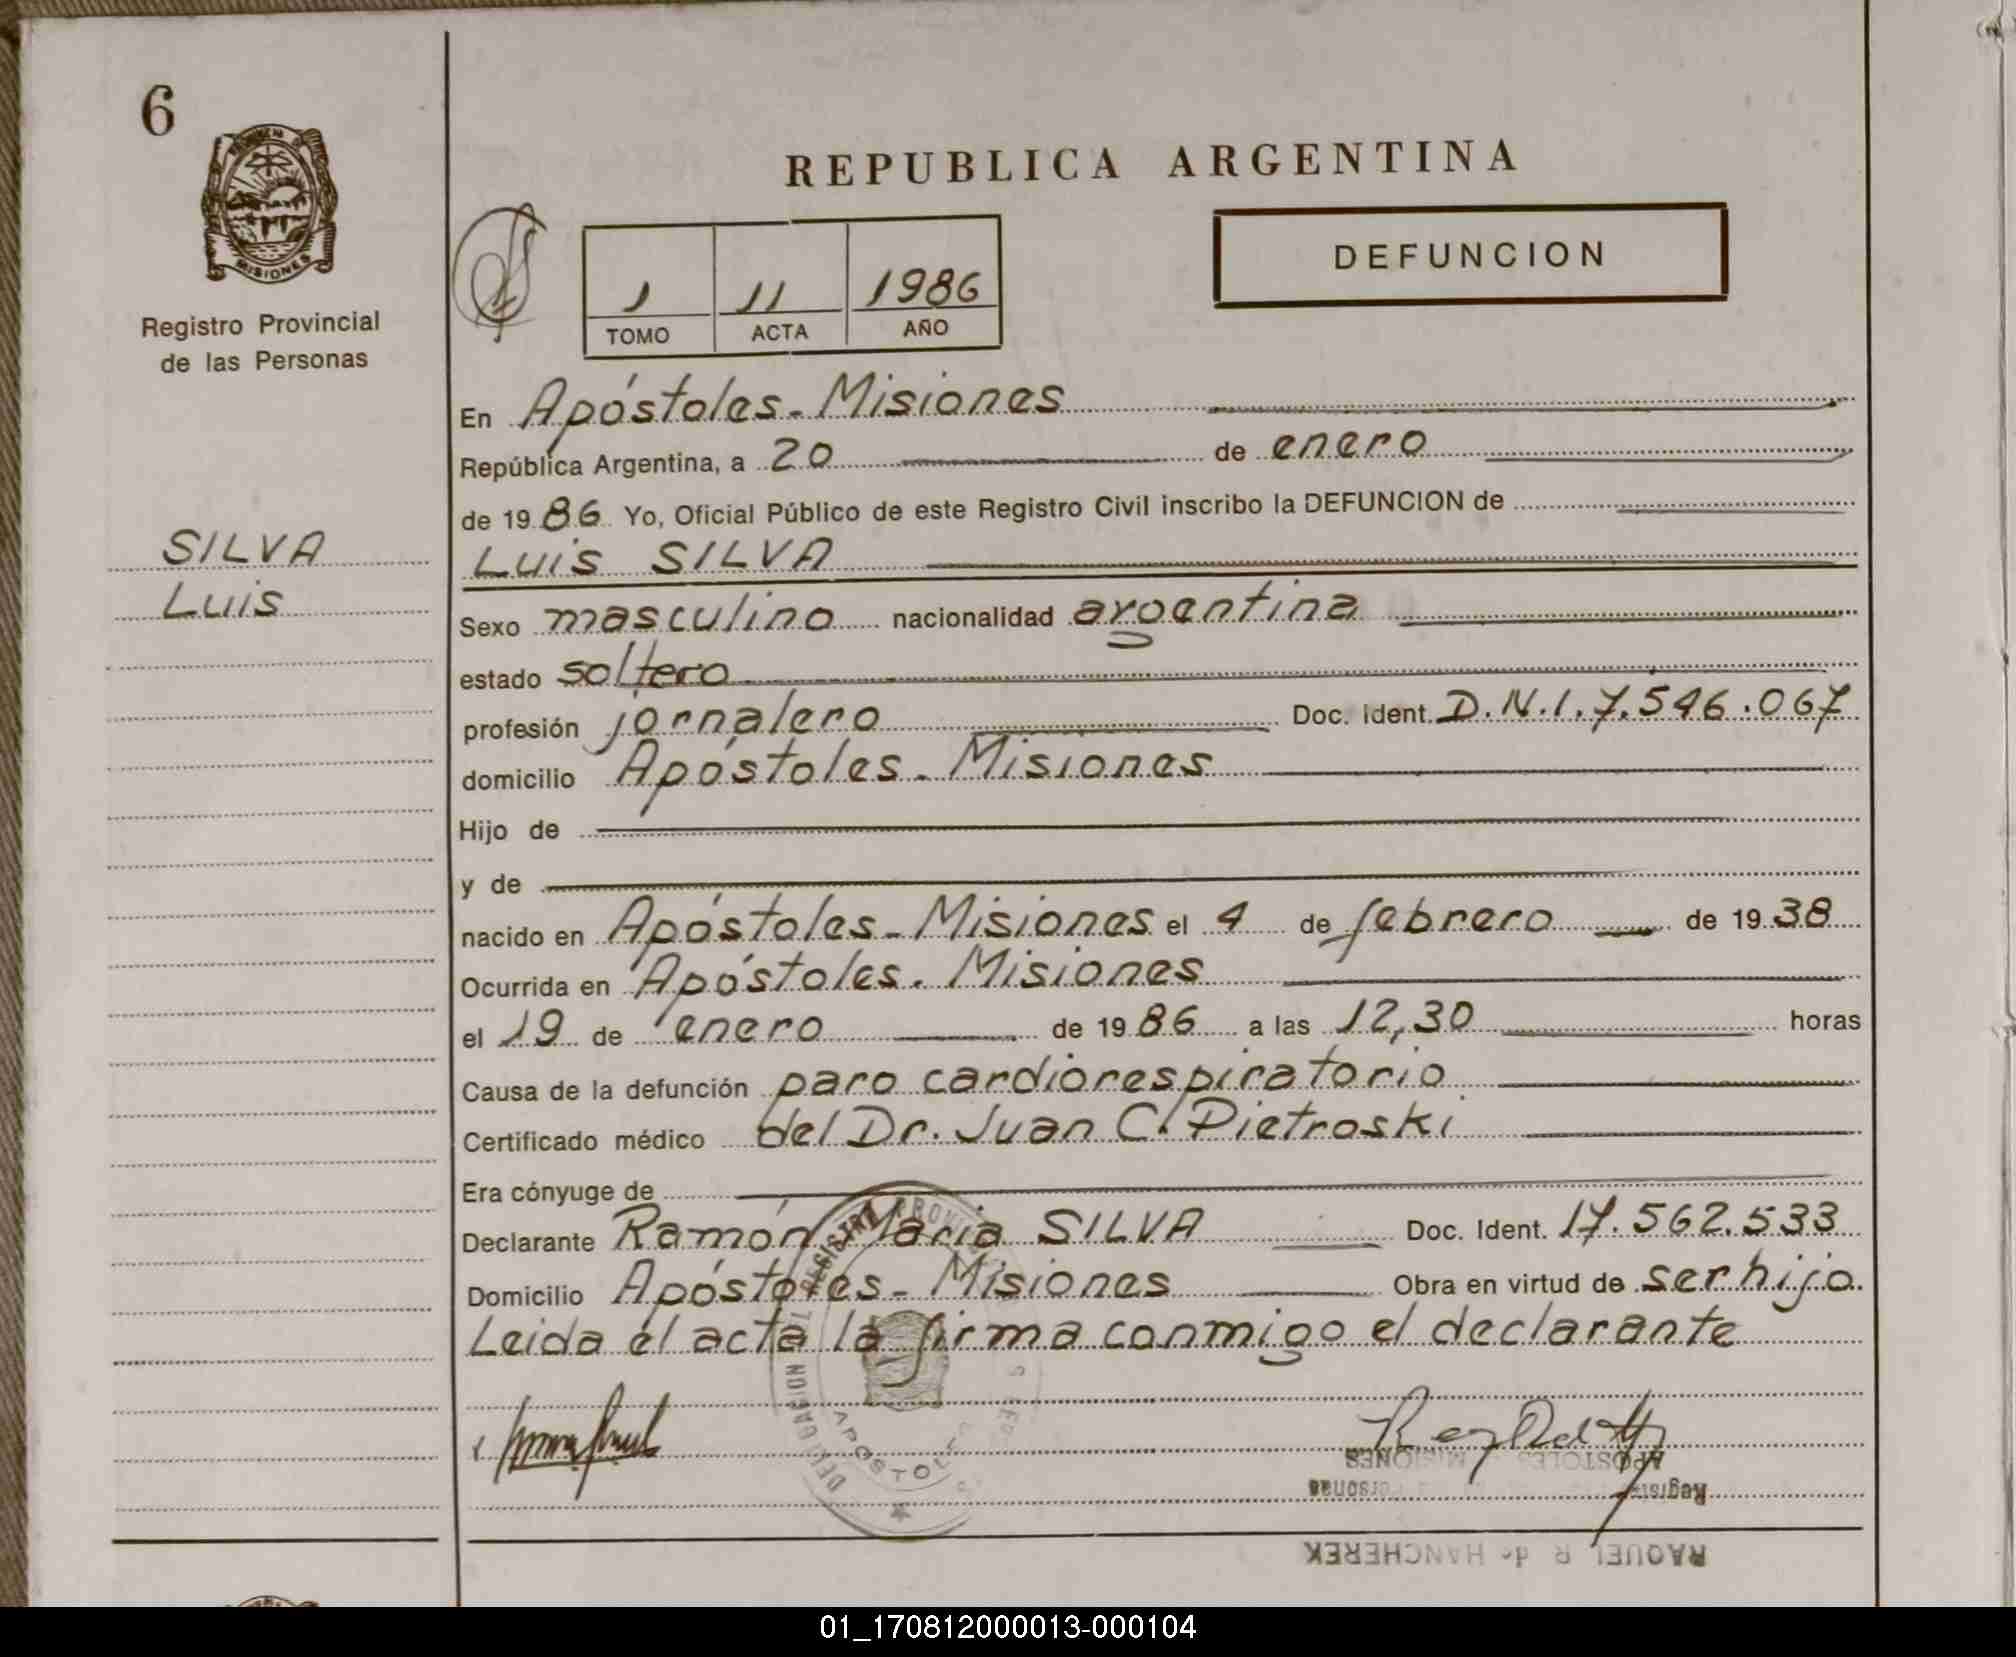 6
PROVINCIA DE
MISIONES
Registro Provincial
de las Personas
SILVA
Luis
REPUBLICA ARGENTINA
1 11 1986
TOMO ACTA AÑO
DEFUNCION
En Apóstoles - Misiones
República Argentina, a 20 de enero
de 1986 Yo, Oficial Público de este Registro Civil inscribo la DEFUNCION de
Luis SILVA
Sexo masculino nacionalidad argentina
estado soltero
profesión jornalero Doc. Ident. D.N.I. 7.546.067
domicilio Apóstoles - Misiones
Hijo de
y de
nacido en Apóstoles - Misiones el 4 de febrero de 1938
Ocurrida en Apóstoles. Misiones
el 19 de enero de 1986 a las 12,30 horas
Causa de la defunción paro cardiorespiratorio
Certificado médico del Dr. Juan C. Pietroski
Era cónyuge de
Declarante Ramón Maria SILVA Doc. Ident. 17.562.533
Domicilio Apóstoles - Misiones Obra en virtud de ser hijo.
Leida el acta la firma conmigo el declarante
APOSTOLES
APOSTOLES MISIONES
RAQUEL R de HANCHEREK
01_170812000013-000104